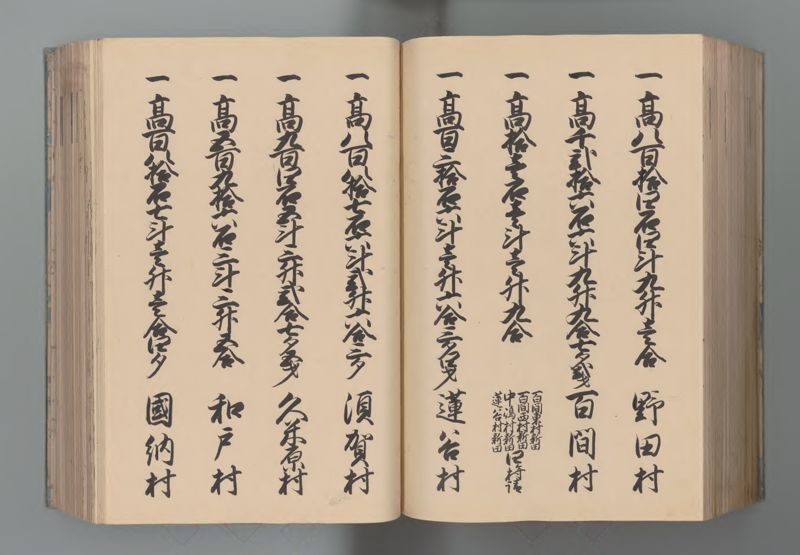 一高八百拾四石四斗九升壱合 野田村
一高千弐拾六石六斗九升九合七夕 百間村
一高拾壱石壱斗壱升九合
百間東村新田
百間西村新田
中嶋村新田
蓮谷村新田
四ヶ村請
一高百三拾石六斗壱升六合三夕 蓮谷村
一高八百八拾七石六斗弐升六合三夕 須賀村
一高九百四石五斗三升弐合七夕 久米原村
一高五百九拾六石三斗三升五合 和戸村
一高百八拾石七斗壱升壱合四夕 國納村